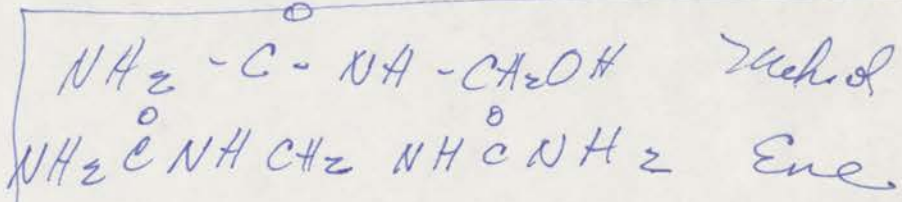 O
NH2 - C - NH - CH2OH Methiol
O O
NH2 C NH CH2 NH C NH2 Ene